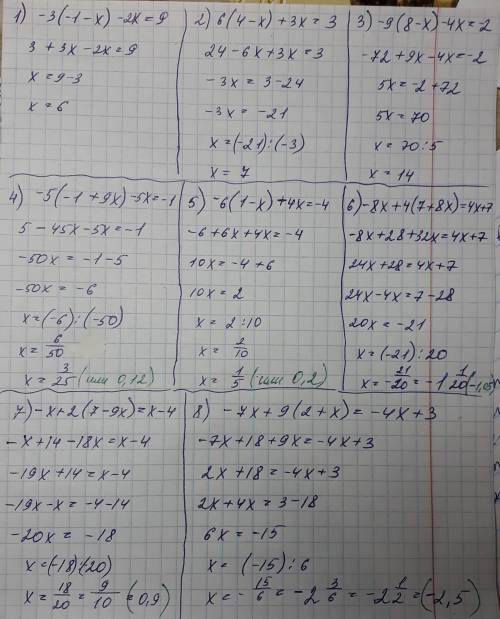 1) -3(-1-x)-2x=9
3+3x-2x=9
x=9-3
x=6
2) 6(4-x)+3x=3
24-6x+3x=3
-3x=3-24
-3x=-21
x=(-21):(-3)
x=7
3) -9(8-x)-4x=-2
-72+9x-4x=-2
5x=-2+72
5x=70
x=70:5
x=14
4) -5(-1+9x)-5x=-1
5-45x-5x=-1
-50x=-1-5
-50x=-6
x=(-6):(-50)
x=6/50
x=3/25 (или 0,12)
5) -6(1-x)+4x=-4
-6+6x+4x=-4
10x=-4+6
10x=2
x=2:10
x=2/10
x=1/5 (или 0,2)
6) -8x+4(7+8x)=4x+7
-8x+28+32x=4x+7
24x+28=4x+7
24x-4x=7-28
20x=-21
x=(-21):20
x=-21/20=-1 1/20 (-1,05)
7) -x+2(7-9x)=x-4
-x+14-18x=x-4
-19x+14=x-4
-19x-x=-4-14
-20x=-18
x=(-18):(-20)
x=18/20=9/10=(0,9)
8) -7x+9(2+x)=-4x+3
-7x+18+9x=-4x+3
2x+18=-4x+3
2x+4x=3-18
6x=-15
x=(-15):6
x=-15/6=-2 3/6=-2 1/2=(-2,5)